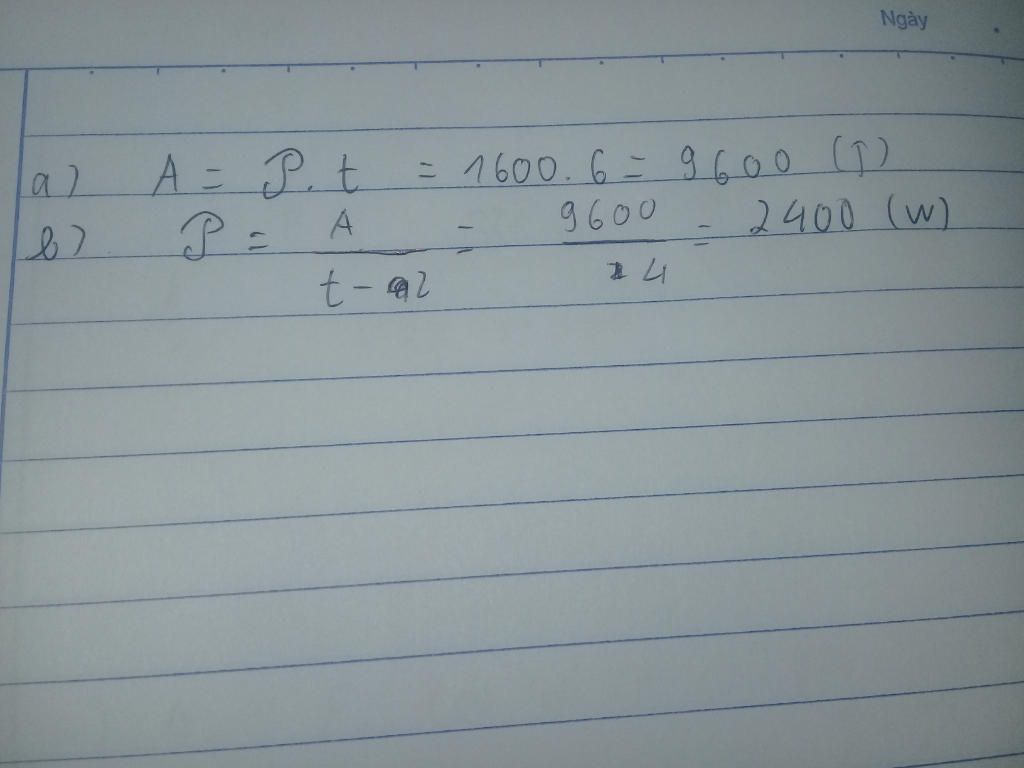 Ngày
a) A = P.t = 1600.6 = 9600 (J)
b) P = A / t - 2 = 9600 / 4 = 2400 (W)